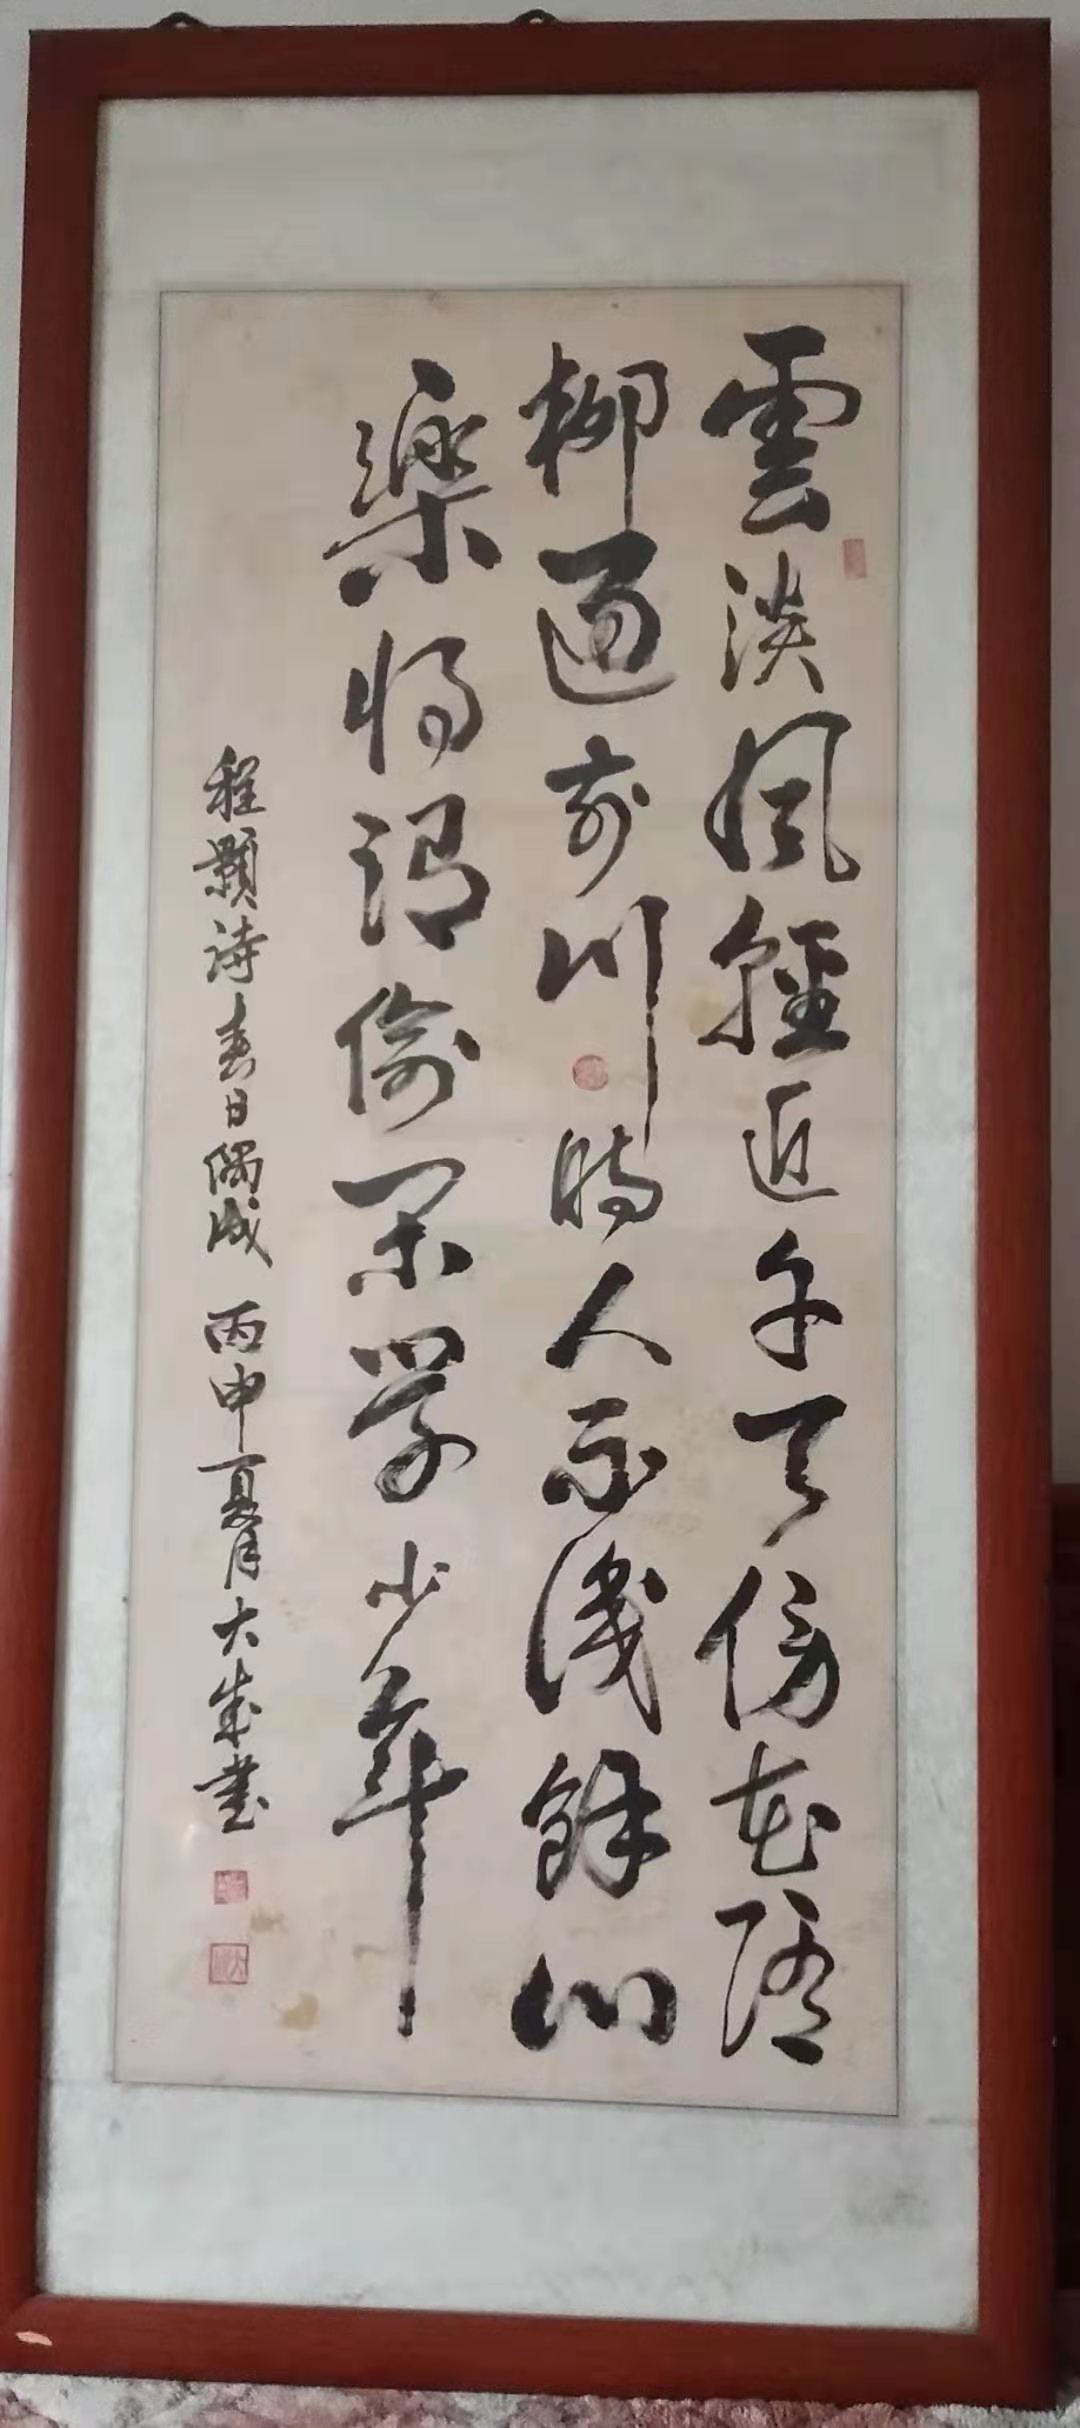 雲淡風輕近午天傍花隨
柳過前川時人不識餘心
樂將謂偷閑學少年
程顥詩春日偶成 丙申夏月大成書